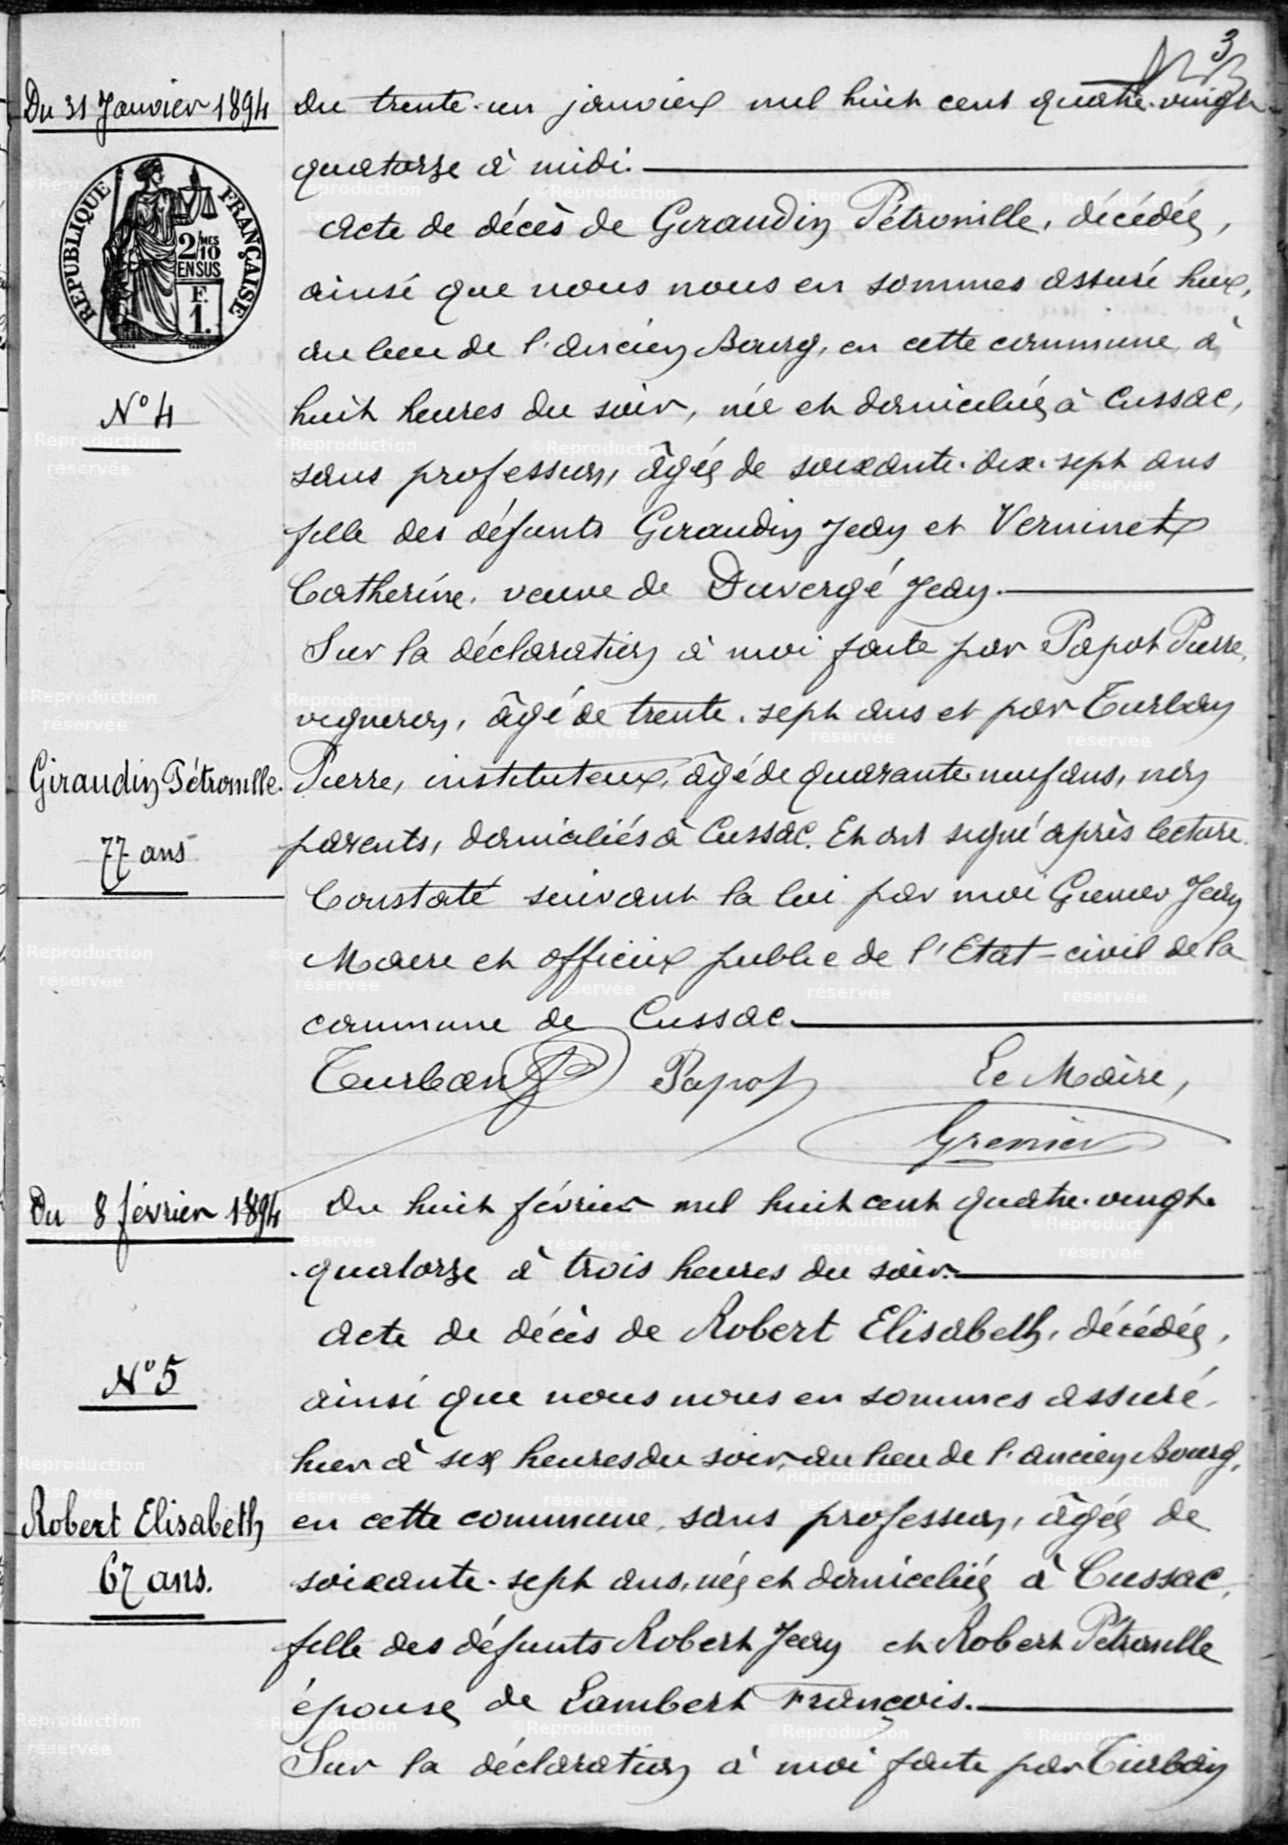 3
Du 31 Janvier 1894
RÉPUBLIQUE FRANÇAISE
2/MES
10
EN SUS
F.
1.
N° 4
Giraudin Pétronille.
77 ans
Du trente-un janvier mil huit cent quatre-vingt-
quatorze à midi.
Acte de décès de Giraudin Pétronille, décédée,
ainsi que nous nous en sommes assuré hier,
au lieu de l'ancien Bourg, en cette commune à
huit heures du soir, née et domiciliée à Cussac,
sans profession, âgée de soixante-dix-sept ans
fille des défunts Giraudin Jean et Verninet
Catherine, veuve de Duvergé Jean.
Sur la déclaration à moi faite par Papot Pierre,
vigneron, âgé de trente-sept ans et par Turban
Pierre, instituteur, âgé de quarante-neuf ans, non
parents, domiciliés à Cussac. Et ont signé après lecture.
Constaté suivant la loi par moi Grenier Jean
Maire et officier public de l'Etat-civil de la
commune de Cussac.
Turban Papot Le Maire,
Grenier
Du 8 février 1894
N° 5
Robert Elisabeth
67 ans.
Du huit février mil huit cent quatre-vingt-
quatorze à trois heures du soir.
Acte de décès de Robert Elisabeth, décédée,
ainsi que nous nous en sommes assuré,
hier à six heures du soir, au lieu de l'ancien Bourg,
en cette commune, sans profession, âgée de
soixante-sept ans, née et domiciliée à Cussac,
fille des défunts Robert Jean et Robert Pétronille
épouse de Lambert François.
Sur la déclaration à moi faite par Turban